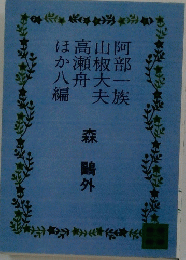 阿部一族
山椒大夫
高瀬舟
ほか八編
森鷗外